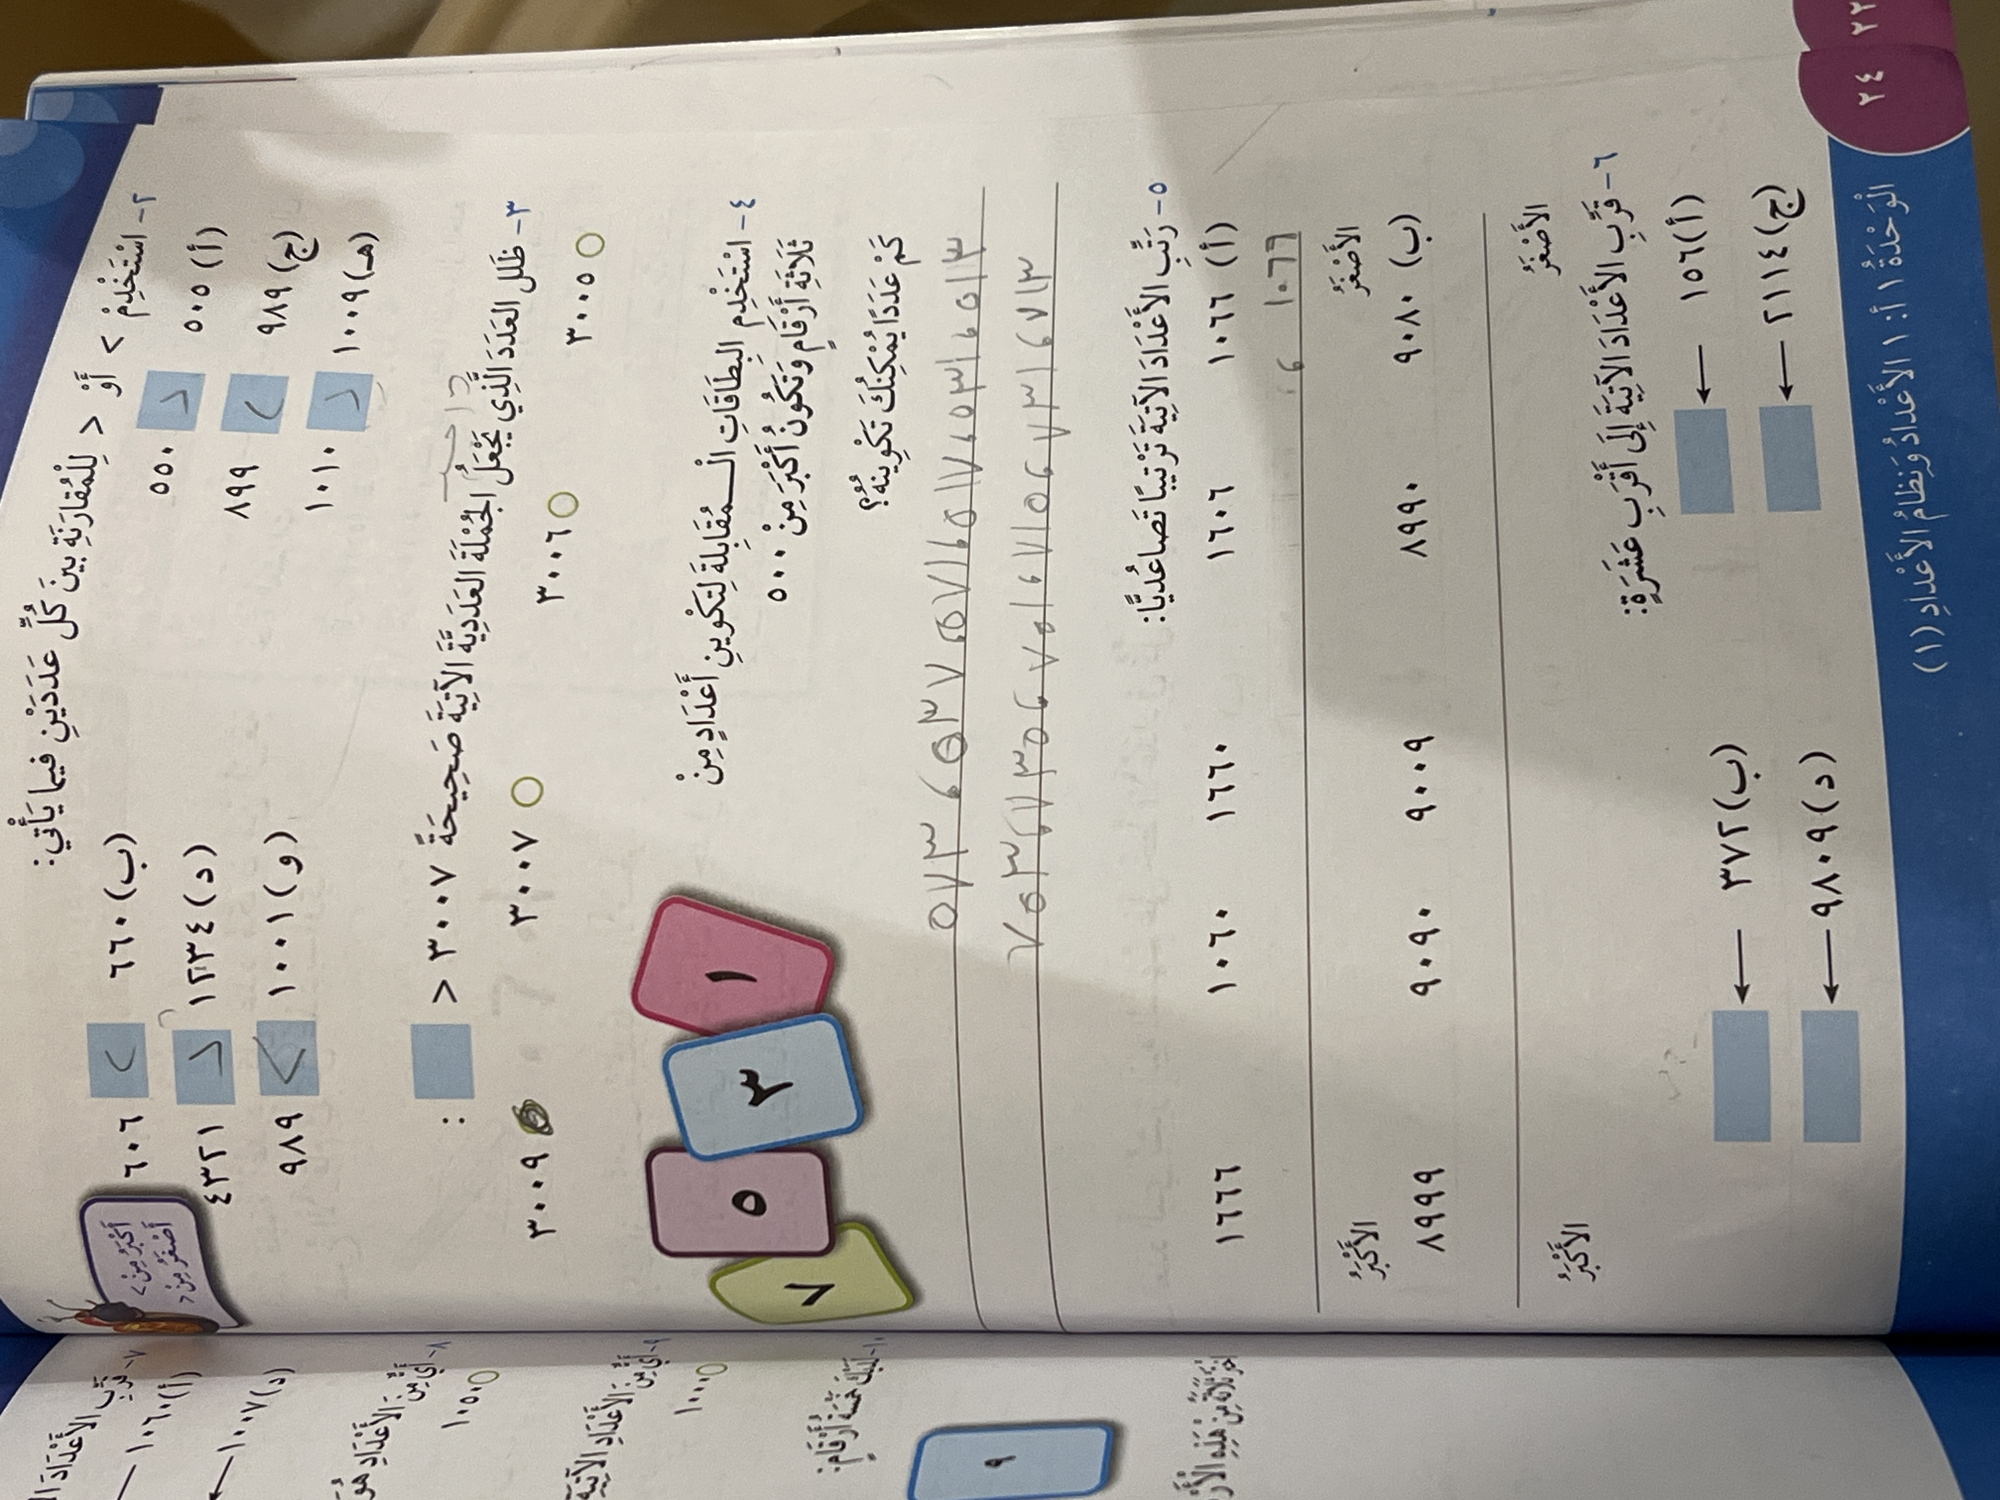 ٢- اسْتَخْدِمْ > أَوْ < لِلْمُقارَنَةِ بينَ كُلِّ عَدَدَيْنِ فيما يَأْتي:
أَكْبَرُ مِنْ >
أَصْغَرُ مِنْ <
(أ) ٥٠٠٥ ٥٥٠
(ب) ٦٦٠ ٦٠٦
(ج) ٩٨٩ ٨٩٩
(د) ١٢٣٤ ٤٣٢١
(هـ) ١٠٠٩ ١٠١٠
(و) ١٠٠١ ٩٨٩
٣- ظَلِّل العَدَدَ الَّذِي يَجْعَلُ الجُمْلَةَ العَدَدِيَّةَ الآتِيَةَ صَحِيحَةً ٣٠٠٧ < :
٣٠٠٥ ٣٠٠٦ ٣٠٠٧ ٣٠٠٩
٤- اسْتَخْدِمِ البِطَاقَاتِ الْـمُقَابِلَةِ لِتَكْوِينِ أَعْدَادٍ مِنْ
ثَلَاثَةِ أَرْقَامٍ وَتَكُونُ أَكْبَرَ مِنْ ٥٠٠
كَمْ عَدَدًا يُمْكِنُكَ تَكْوِينُهُ؟
١ ٣ ٥ ٧
٥- رَتِّبِ الأَعْدَادَ الآتِيَةَ تَرْتِيبًا تَصَاعُدِيًّا:
(أ) ١٠٦٦ ١٦٠٦ ١٦٦٠ ١٠٦٠ ١٦٦٦
١٠٦٦
الأَصْغَرُ الأَكْبَرُ
(ب) ٩٠٨٠ ٨٩٩٠ ٩٠٠٩ ٩٠٩٠ ٨٩٩٩
الأَصْغَرُ الأَكْبَرُ
٦- قَرِّبِ الأَعْدَادَ الآتِيَةَ إِلَى أَقْرَبِ عَشَرَةٍ:
(أ) ١٥٦ ← (ب) ٣٧٢ ←
(ج) ٢١١٤ ← (د) ٩٨٠٩ ←
الْوَحْدَةُ ١أ: ١ الأَعْدَادُ وَنِظَامُ الأَعْدَادِ (١)
٢٤
٢٢
٧- قَرِّبِ الأَعْدَادَ
(أ) ١٠٦٠ ←
(د) ١٠٠٧ ←
٨- أَيٌّ مِنَ الأَعْدَادِ
١٠٥٠
٩- أَيٌّ مِنَ الأَعْدَادِ الآتِيَةِ
١٠٠٠
١٠- لَدَيْكَ خَمْسَةُ أَرْقَامٍ:
٩